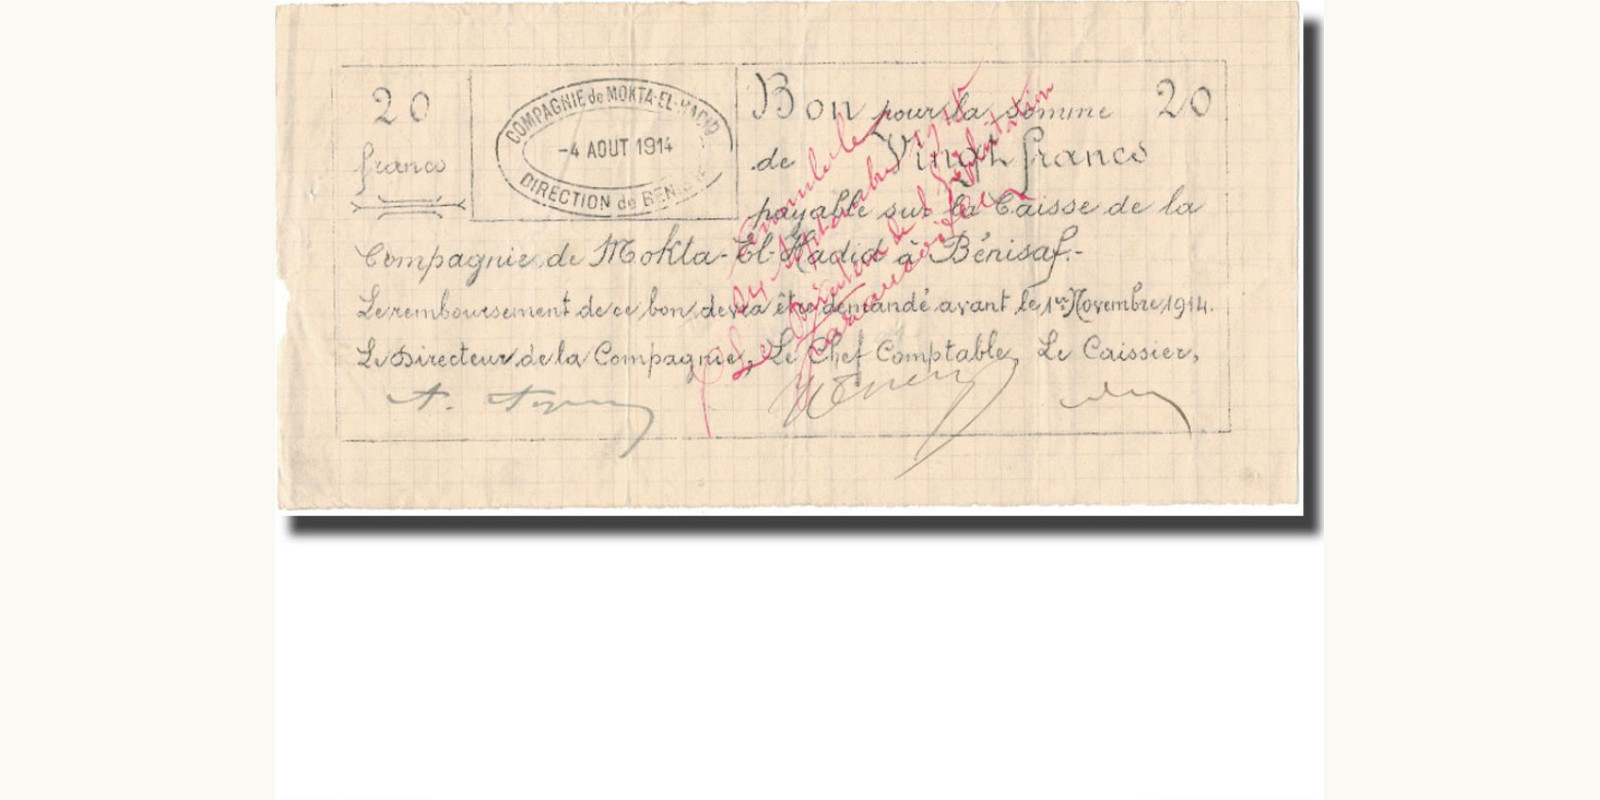 20
francs
COMPAGNIE de MOKTA-EL-HADID
-4 AOUT 1914
DIRECTION de BENISAF
Bon pour la somme 20
de Vingt francs
payable sur la Caisse de la
Compagnie de Mokta-El-Hadid à Bénisaf.-
Le remboursement de ce bon devra être demandé avant le 1er Novembre 1914.
Le Directeur de la Compagnie, Le Chef Comptable, Le Caissier,
Annulé le
Le Directeur de l'Exploitation